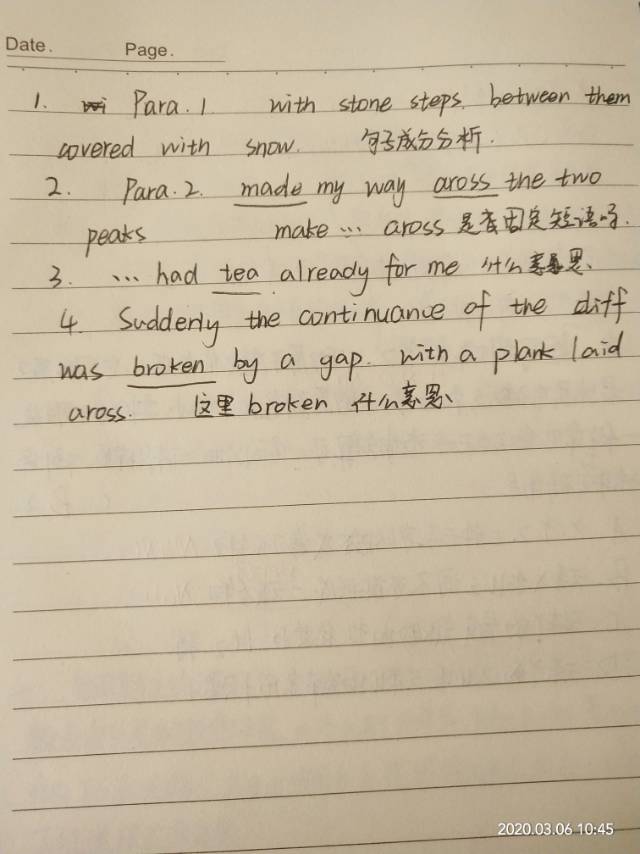 Date. Page.
1. Para. 1 with stone steps. between them
covered with snow. 句子成分分析.
2. Para. 2. made my way aross the two
peaks make ... aross 是否固定短语吗.
3. ... had tea already for me 什么意思、
4. Suddenly the continuance of the cliff
was broken by a gap. with a plank laid
aross. 这里 broken 什么意思、
2020.03.06 10:45